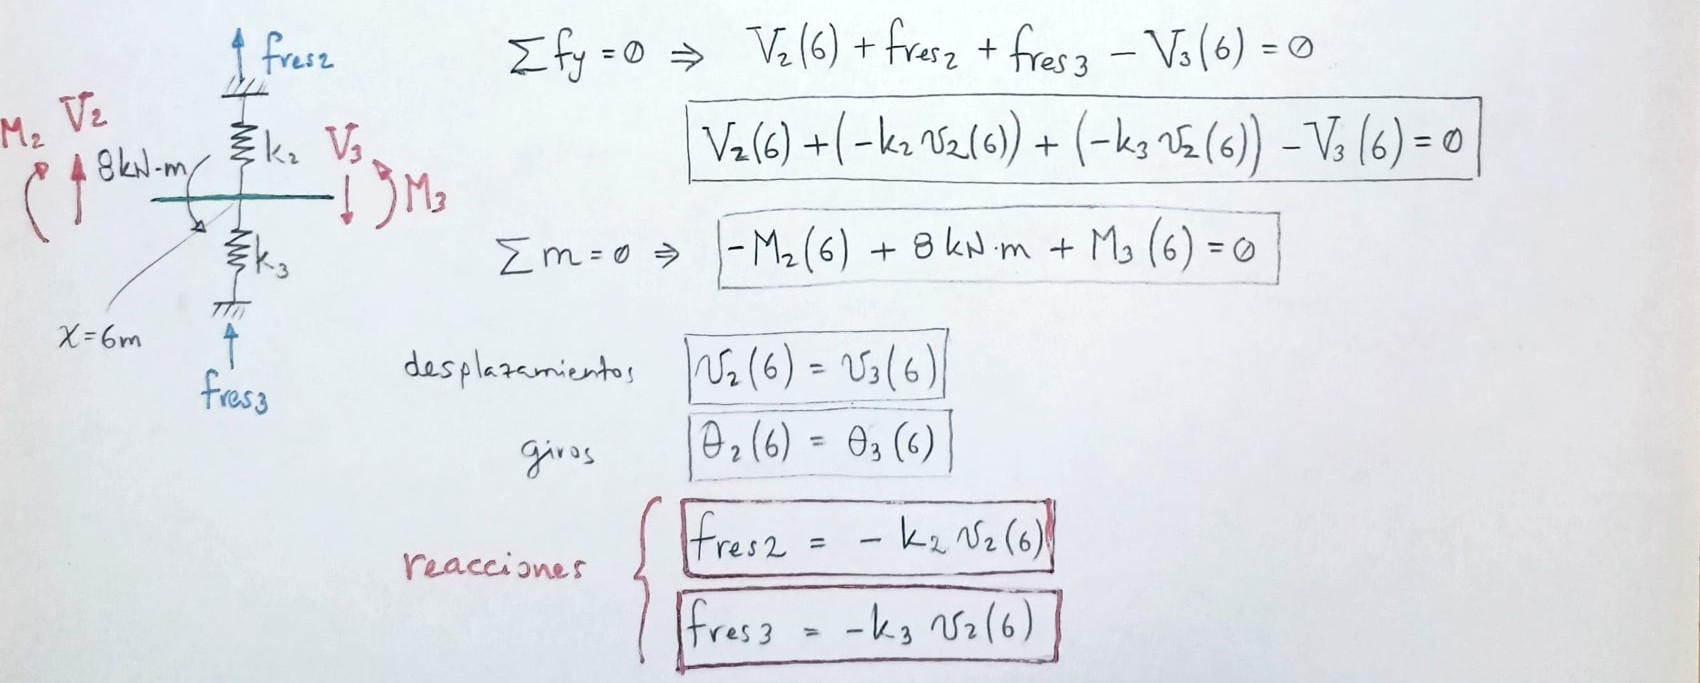 fres2
M2 V2
8kN-m
k2 V3
M3
k3
x=6m
fres3
Σfy=0 ⇒ V2(6) + fres2 + fres3 - V3(6) = 0
V2(6) + (-k2 v2(6)) + (-k3 v2(6)) - V3(6) = 0
Σm=0 ⇒ -M2(6) + 8kN·m + M3(6) = 0
desplazamientos v2(6) = v3(6)
giros θ2(6) = θ3(6)
reacciones
fres2 = -k2 v2(6)
fres3 = -k3 v2(6)